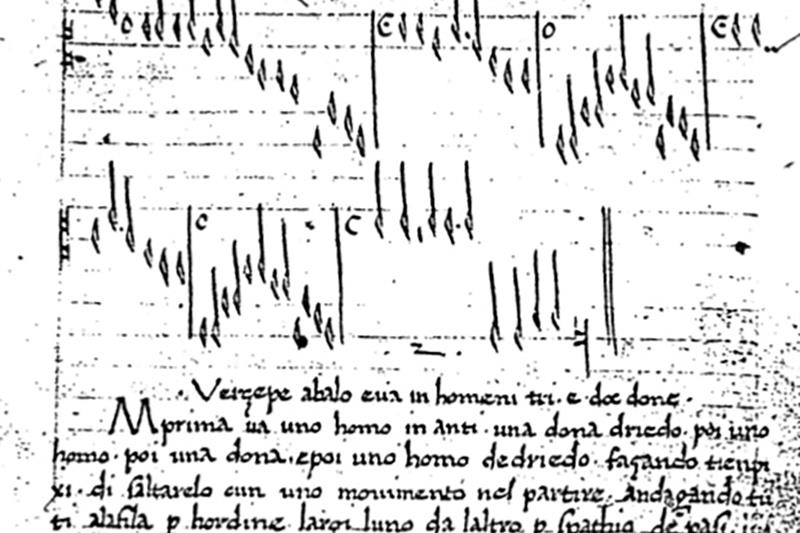 Verçepe abalo eua in homeni tri · e · doe done ·
Mprima ua uno homo in anti · una dona driedo · poi uno
homo · poi una dona · epoi uno homo dedriedo · façando tienpi
xi · di saltarelo cun uno mouimento nel partire · Andagando tu
ti alafila p hordine largi luno da laltro p spathio de pasi